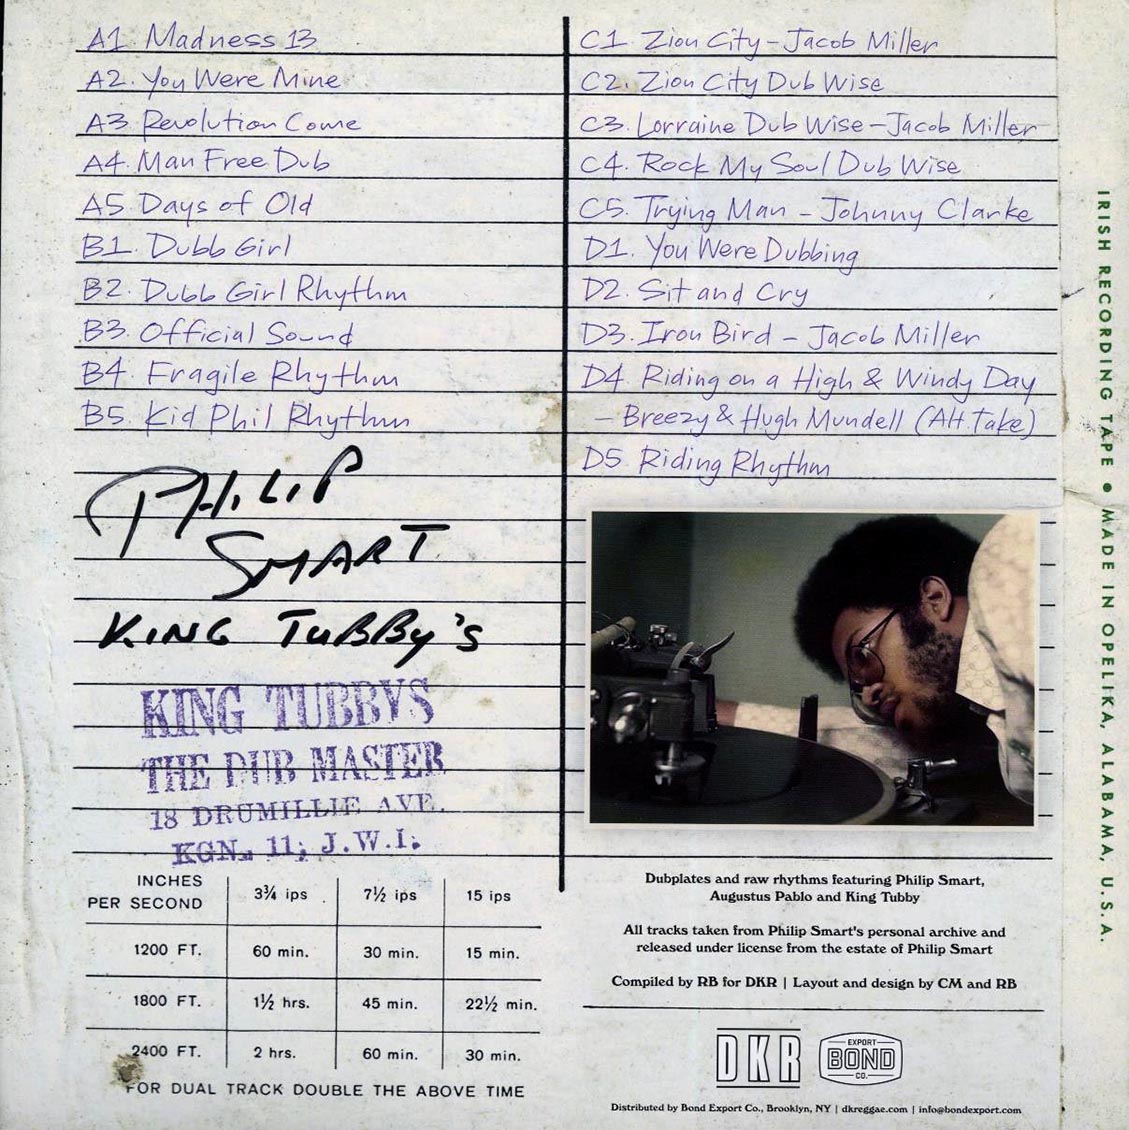 A1 Madness 13
A2. You Were Mine
A3 Revolution Come
A4. Man Free Dub
A5. Days of Old
B1. Dubb Girl
B2. Dubb Girl Rhythm
B3. Official Sound
B4. Fragile Rhythm
B5. Kid Phil Rhythm
C1. Zion City - Jacob Miller
C2. Zion City Dub Wise
C3. Lorraine Dub Wise - Jacob Miller
C4. Rock My Soul Dub Wise
C5. Trying Man - Johnny Clarke
D1. You Were Dubbing
D2. Sit and Cry
D3. Iron Bird - Jacob Miller
D4 Riding on a High & Windy Day
- Breezy & Hugh Mundell (Alt. Take)
D5. Riding Rhythm
PHILIP
SMART
KING TUBBY'S
KING TUBBYS
THE DUB MASTER
18 DRUMILLIE AVE.
KGN. 11; J.W.I.
INCHES PER SECOND 3¾ ips 7½ ips 15 ips
1200 FT. 60 min. 30 min. 15 min.
1800 FT. 1½ hrs. 45 min. 22½ min.
2400 FT. 2 hrs. 60 min. 30 min.
FOR DUAL TRACK DOUBLE THE ABOVE TIME
Dubplates and raw rhythms featuring Philip Smart,
Augustus Pablo and King Tubby
All tracks taken from Philip Smart's personal archive and
released under license from the estate of Philip Smart
Compiled by RB for DKR | Layout and design by CM and RB
DKR
EXPORT
BOND
CO.
Distributed by Bond Export Co., Brooklyn, NY | dkreggae.com | info@bondexport.com
IRISH RECORDING TAPE • MADE IN OPELIKA, ALABAMA, U.S.A.